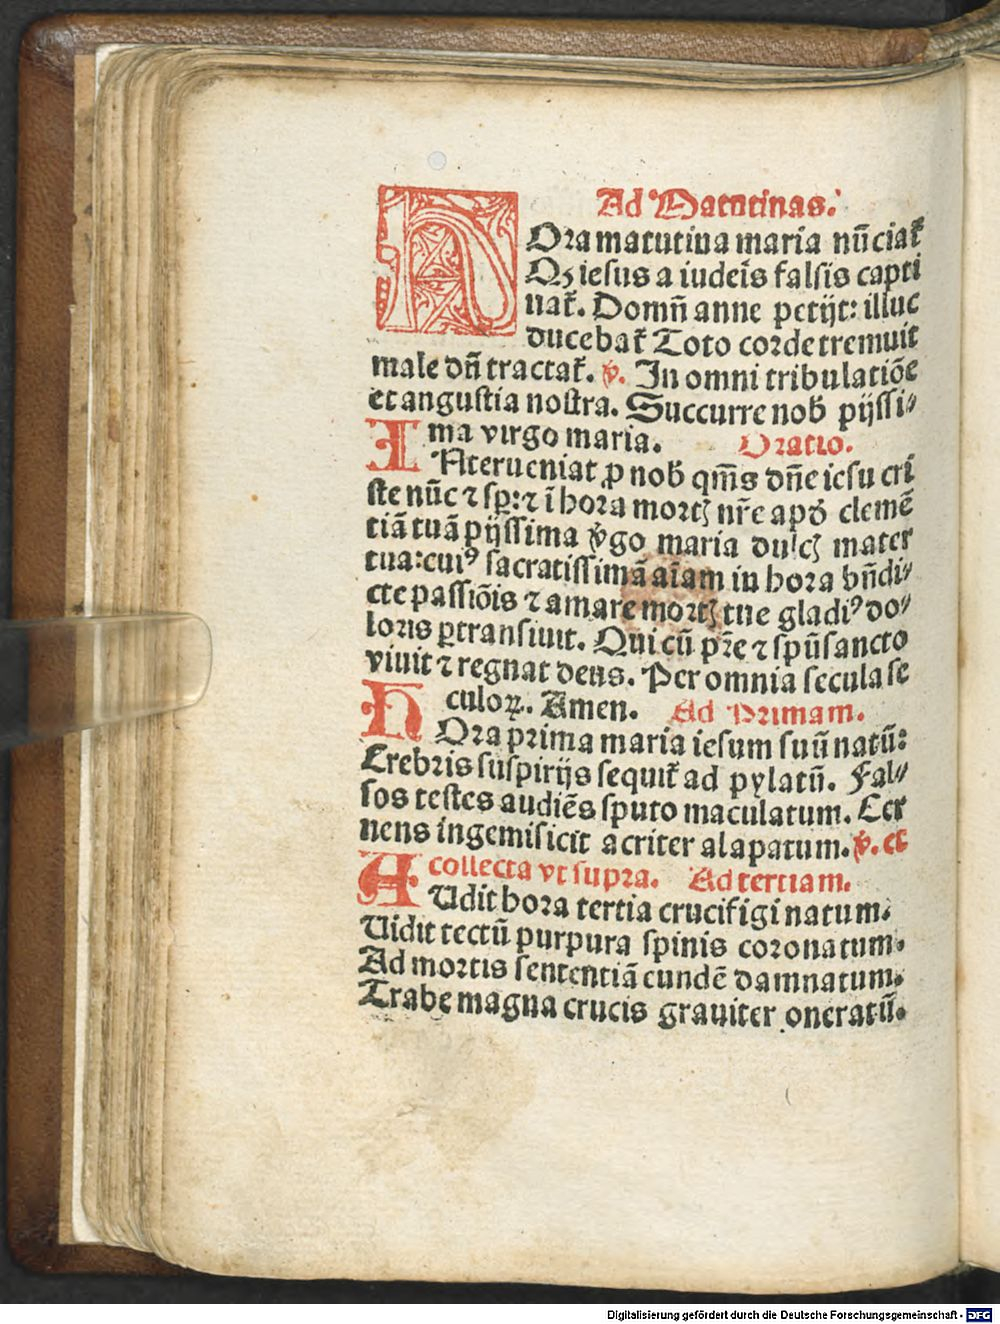 Ad Matutinas.
HOra matutina maria nūciat᷑
Qꝫ iesus a iudeis falsis capti
uat᷑. Domū anne petijt: illuc
ducebat᷑ Toto corde tremuit
male dn̄ tractat᷑. ℣. In omni tribulatiōe
et angustia nostra. Succurre nob̄ pijssi⸗
ma virgo maria. Oratio.
INterueniat ꝓ nob̄ qm̄s dn̄e iesu cri
ste nūc ⁊ sꝑ: ⁊ ī hora mortꝫ nr̄e apd̕ clemē
tiā tuā pijssima v̕go maria dulcꝫ mater
tua: cuiꝰ sacratissimā aīam in hora bn̄di⸗
cte passiōis ⁊ amare mortꝫ tue gladiꝰ do⸗
loris ꝑtransiuit. Qui cū pr̄e ⁊ spū sancto
viuit ⁊ regnat deus. Per omnia secula se
culoꝝ. Amen. Ad Primam.
HOra prima maria iesum suū natū:
Crebris suspirijs sequit᷑ ad pylatū. Fal⸗
sos testes audiēs sputo maculatum. Cer
nens ingemisicit acriter alapatum. ℣. et
collecta vt supra. Ad tertiam.
AUdit hora tertia crucifigi natum.
Uidit tectū purpura spinis coronatum.
Ad mortis sententiā eundē damnatum.
Trabe magna crucis grauiter oneratū.
Digitalisierung gefördert durch die Deutsche Forschungsgemeinschaft - DFG